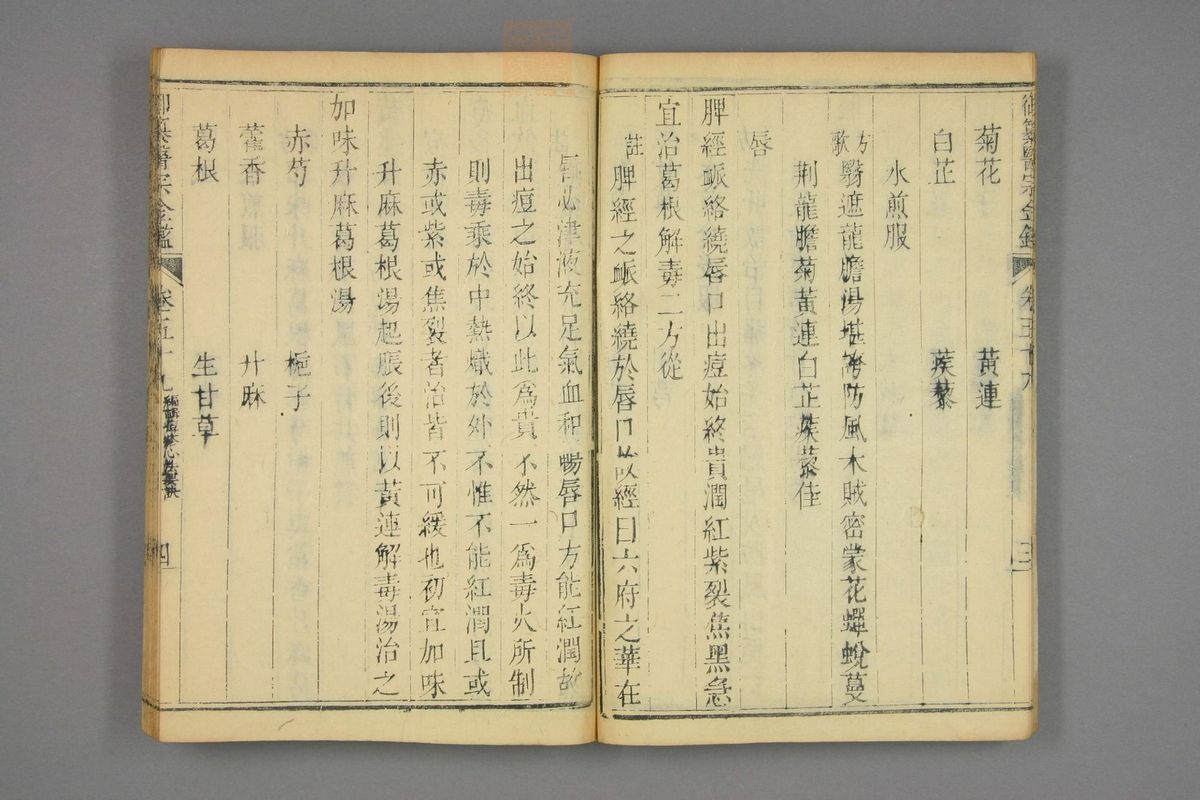 御纂醫宗金鑑 卷五十九 三
菊花 黃連
白芷 蒺藜
水煎服
方歌 翳遮龍膽湯堪誇防風木賊密蒙花蟬蛻蔓
荆龍膽菊黃連白芷蒺藜佳
唇
脾經脈絡繞唇口出痘始終貴潤紅紫裂焦黑急
宜治葛根解毒二方從
註 脾經之脈絡繞於唇口故經曰六府之華在
唇必津液充足氣血和暢唇口方能紅潤故
出痘之始終以此爲貴不然一爲毒火所制
則毒乘於中熱熾於外不惟不能紅潤且或
赤或紫或焦裂者治皆不可緩也初宜加味
升麻葛根湯起脹後則以黃連解毒湯治之
加味升麻葛根湯
赤芍 梔子
藿香 升麻
葛根 生甘草
御纂醫宗金鑑 卷五十九 四